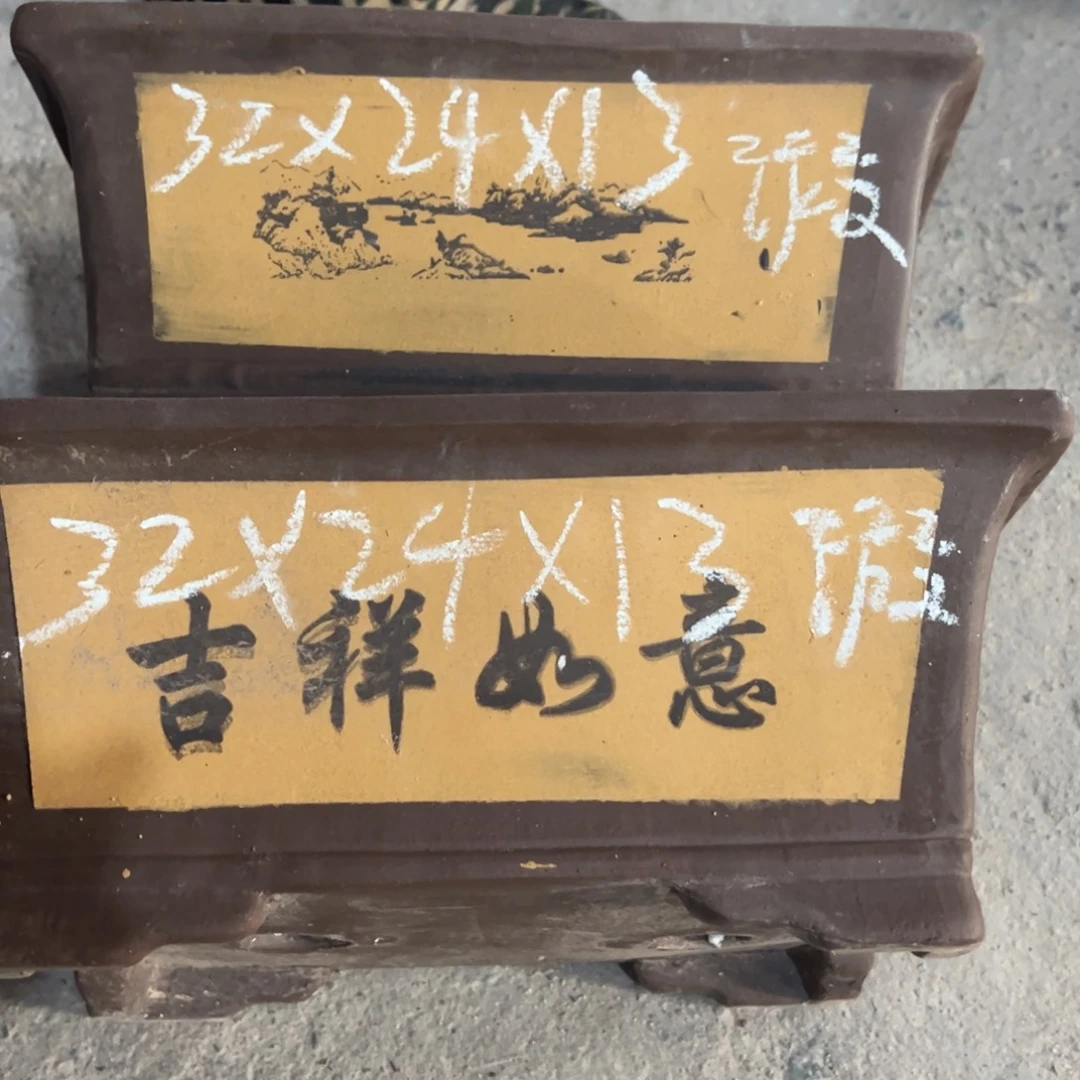 32×24×13
32×24×13
吉祥如意